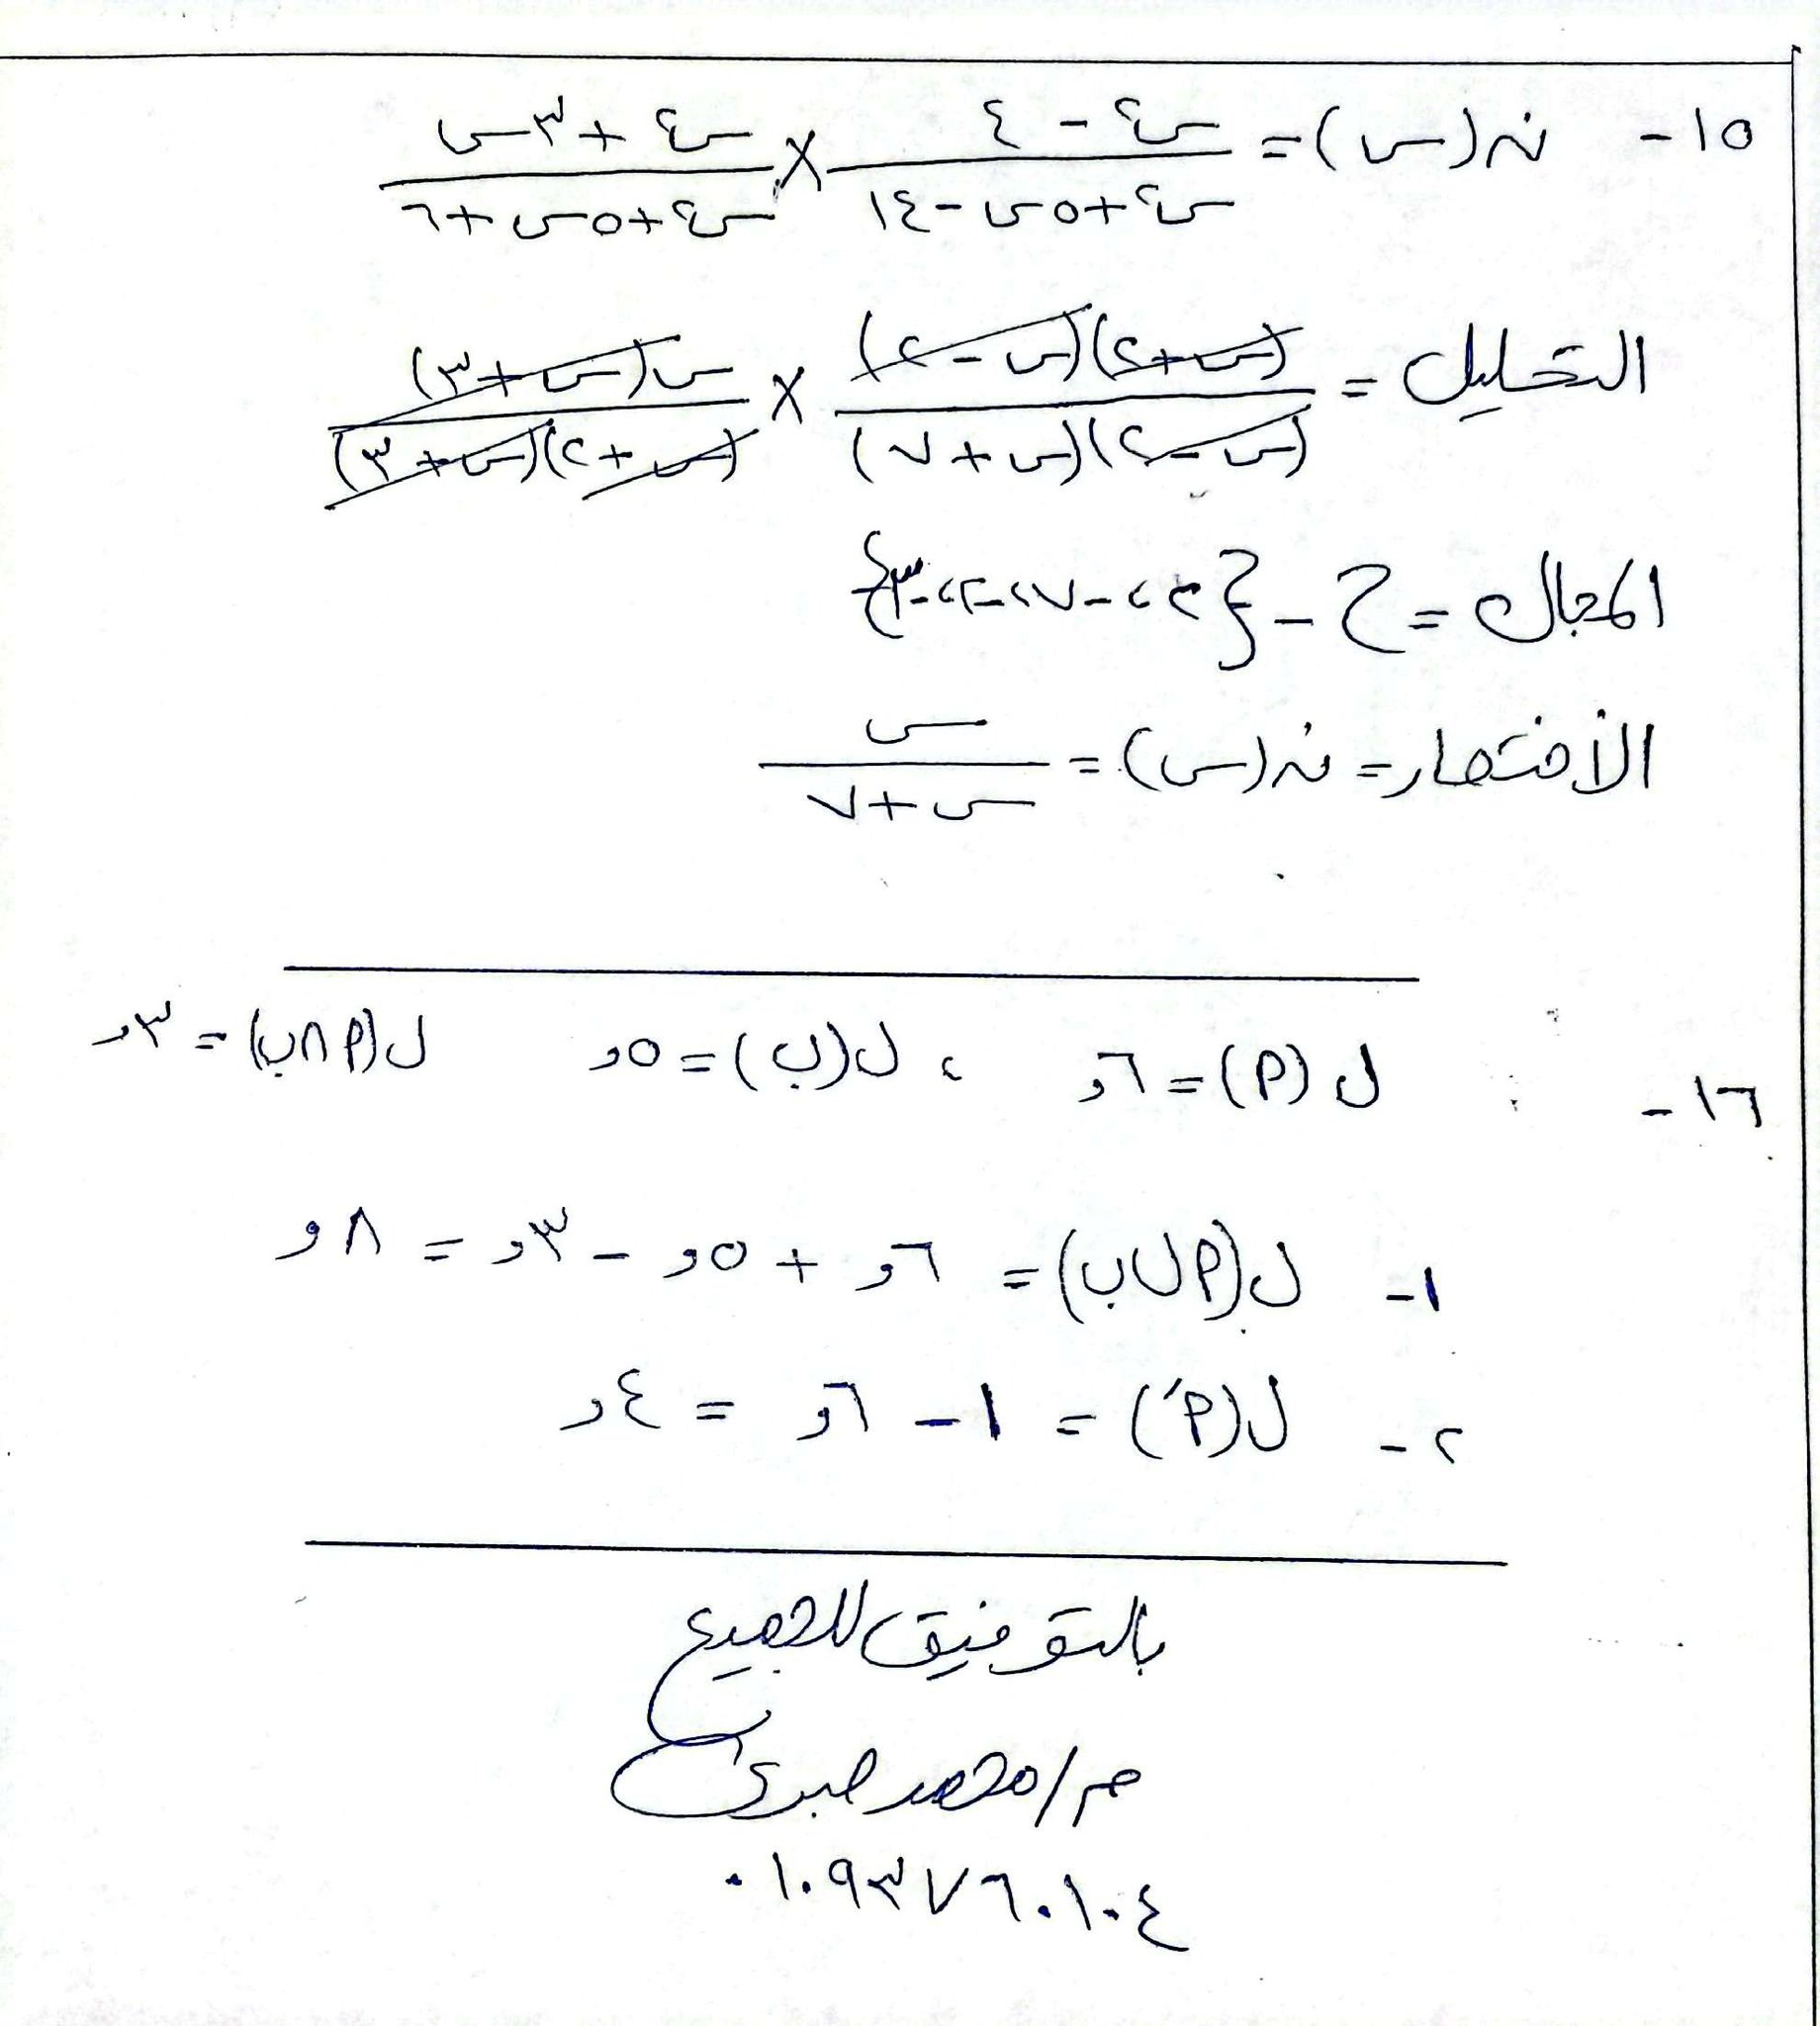 ١٥- ن(س) = (س٢ - ٤)/(س٢ + ٥س - ١٤) × (س٢ + ٣س)/(س٢ + ٥س + ٦)
التحليل = (س + ٢)(س - ٢)/(س - ٢)(س + ٧) × س(س + ٣)/(س + ٢)(س + ٣)
المجال = ح - {٢، -٧، -٢، -٣}
الأختصار = ن(س) = س/(س + ٧)
١٦- ل(P) = ٦و ، ل(ب) = ٥و ل(P∩ب) = ٣و
١- ل(P∪ب) = ٦و + ٥و - ٣و = ٨و
٢- ل(P′) = ١ - ٦و = ٤و
بالتوفيق للجميع
م/محمد صبرى
٠١٠٩٣٧٦٠١٠٤